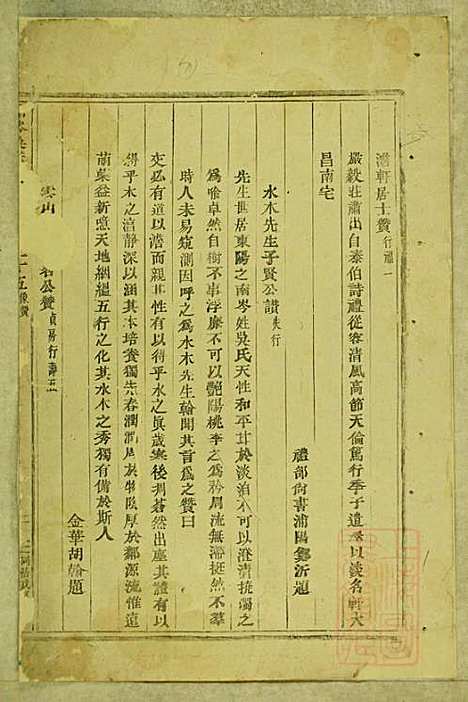 澹軒居士贊行禮一
嚴毅莊肅出自泰伯詩禮從容清風高節天倫篤行季子遺以淡名軒大
昌南宅
禮部尚書浦陽鄭沂題
水木先生子賢公讚失行
先生世居東陽之南岑姓吳氏天性和平甘於淡泊不可以澄清撓濁之
為喻卓然自樹不事浮靡不可以艷陽桃李之為矜周流無滯挺然不羣
時人未易窺測因呼之為水木先生翰聞其首為之贊曰
交必有道以澹而親其性有以得乎水之眞歲寒後凋蒼然出塵其體有以
得乎木之淯靜深以涵其本培養獨先春潤周於物限厚於鄰源流惟遠
萌蘖益新噫天地絪縕五行之化其水木之秀獨有備於斯人
金華胡翰題
公贊貞易行壽五